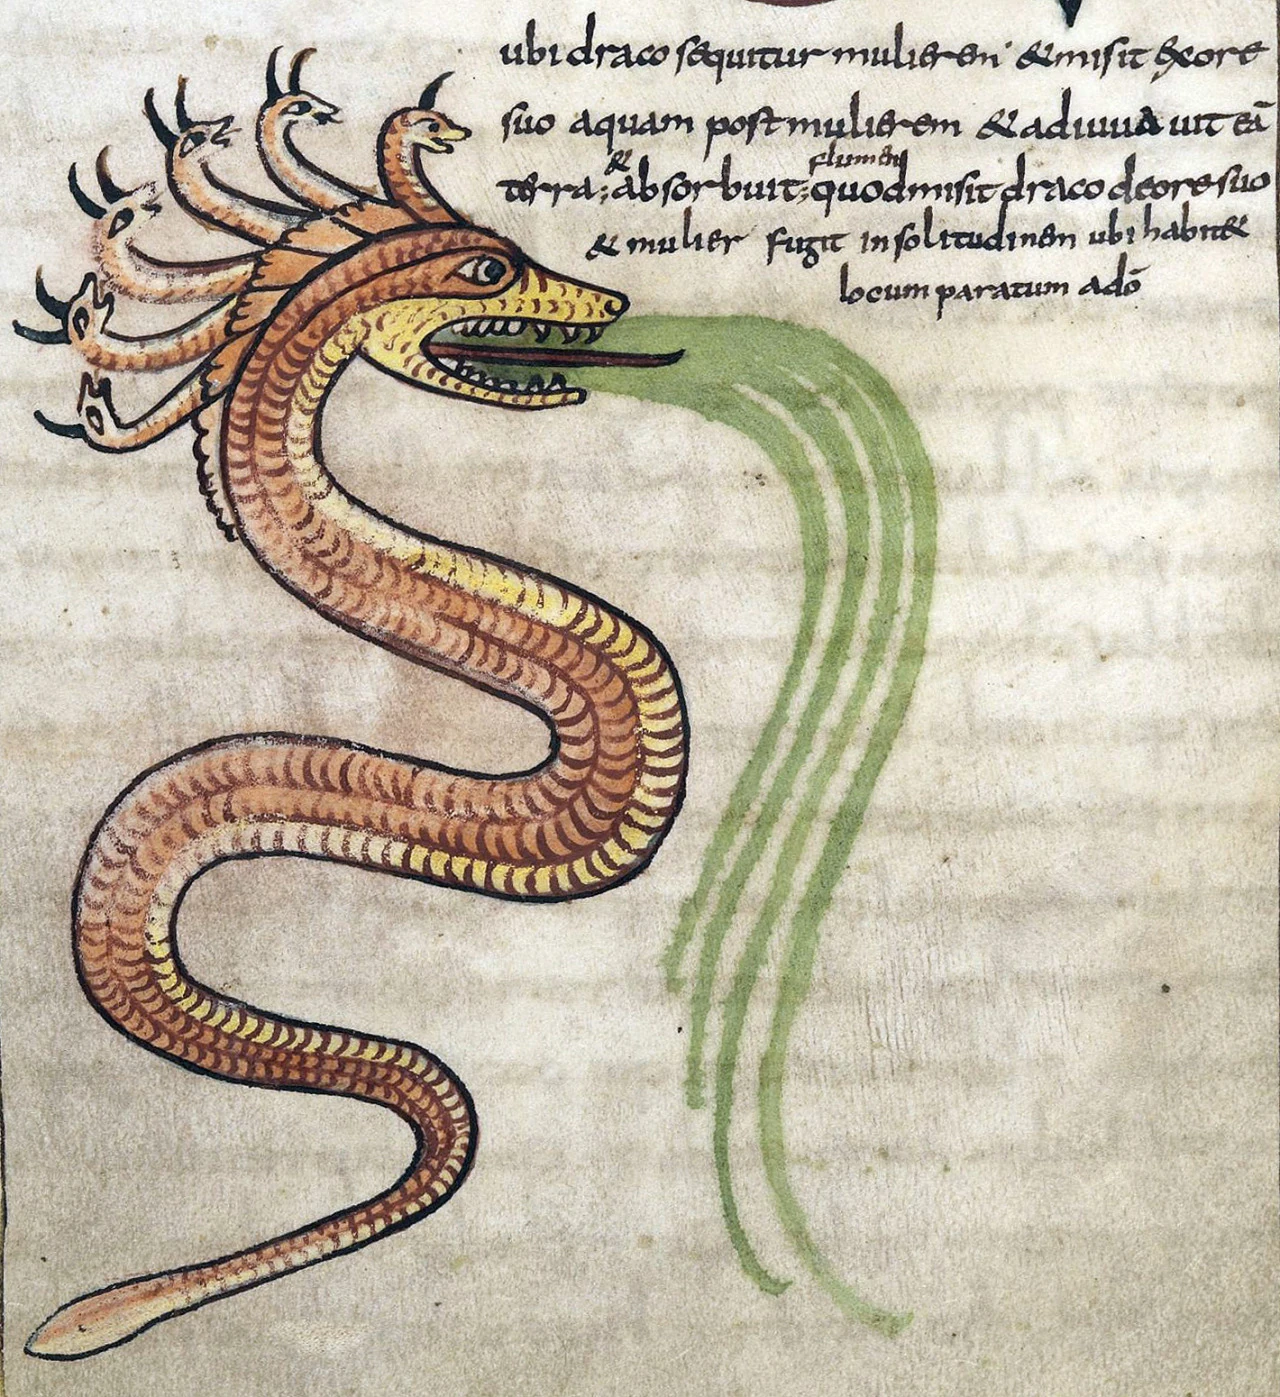 ubi draco sequitur mulierem & misit ex ore
suo aquam post mulierem & adiuuauit eā
&
flumen
terra; absorbuit; quod misit draco de ore suo
& mulier fugit in solitudinem ubi habit&
locum paratum a dō